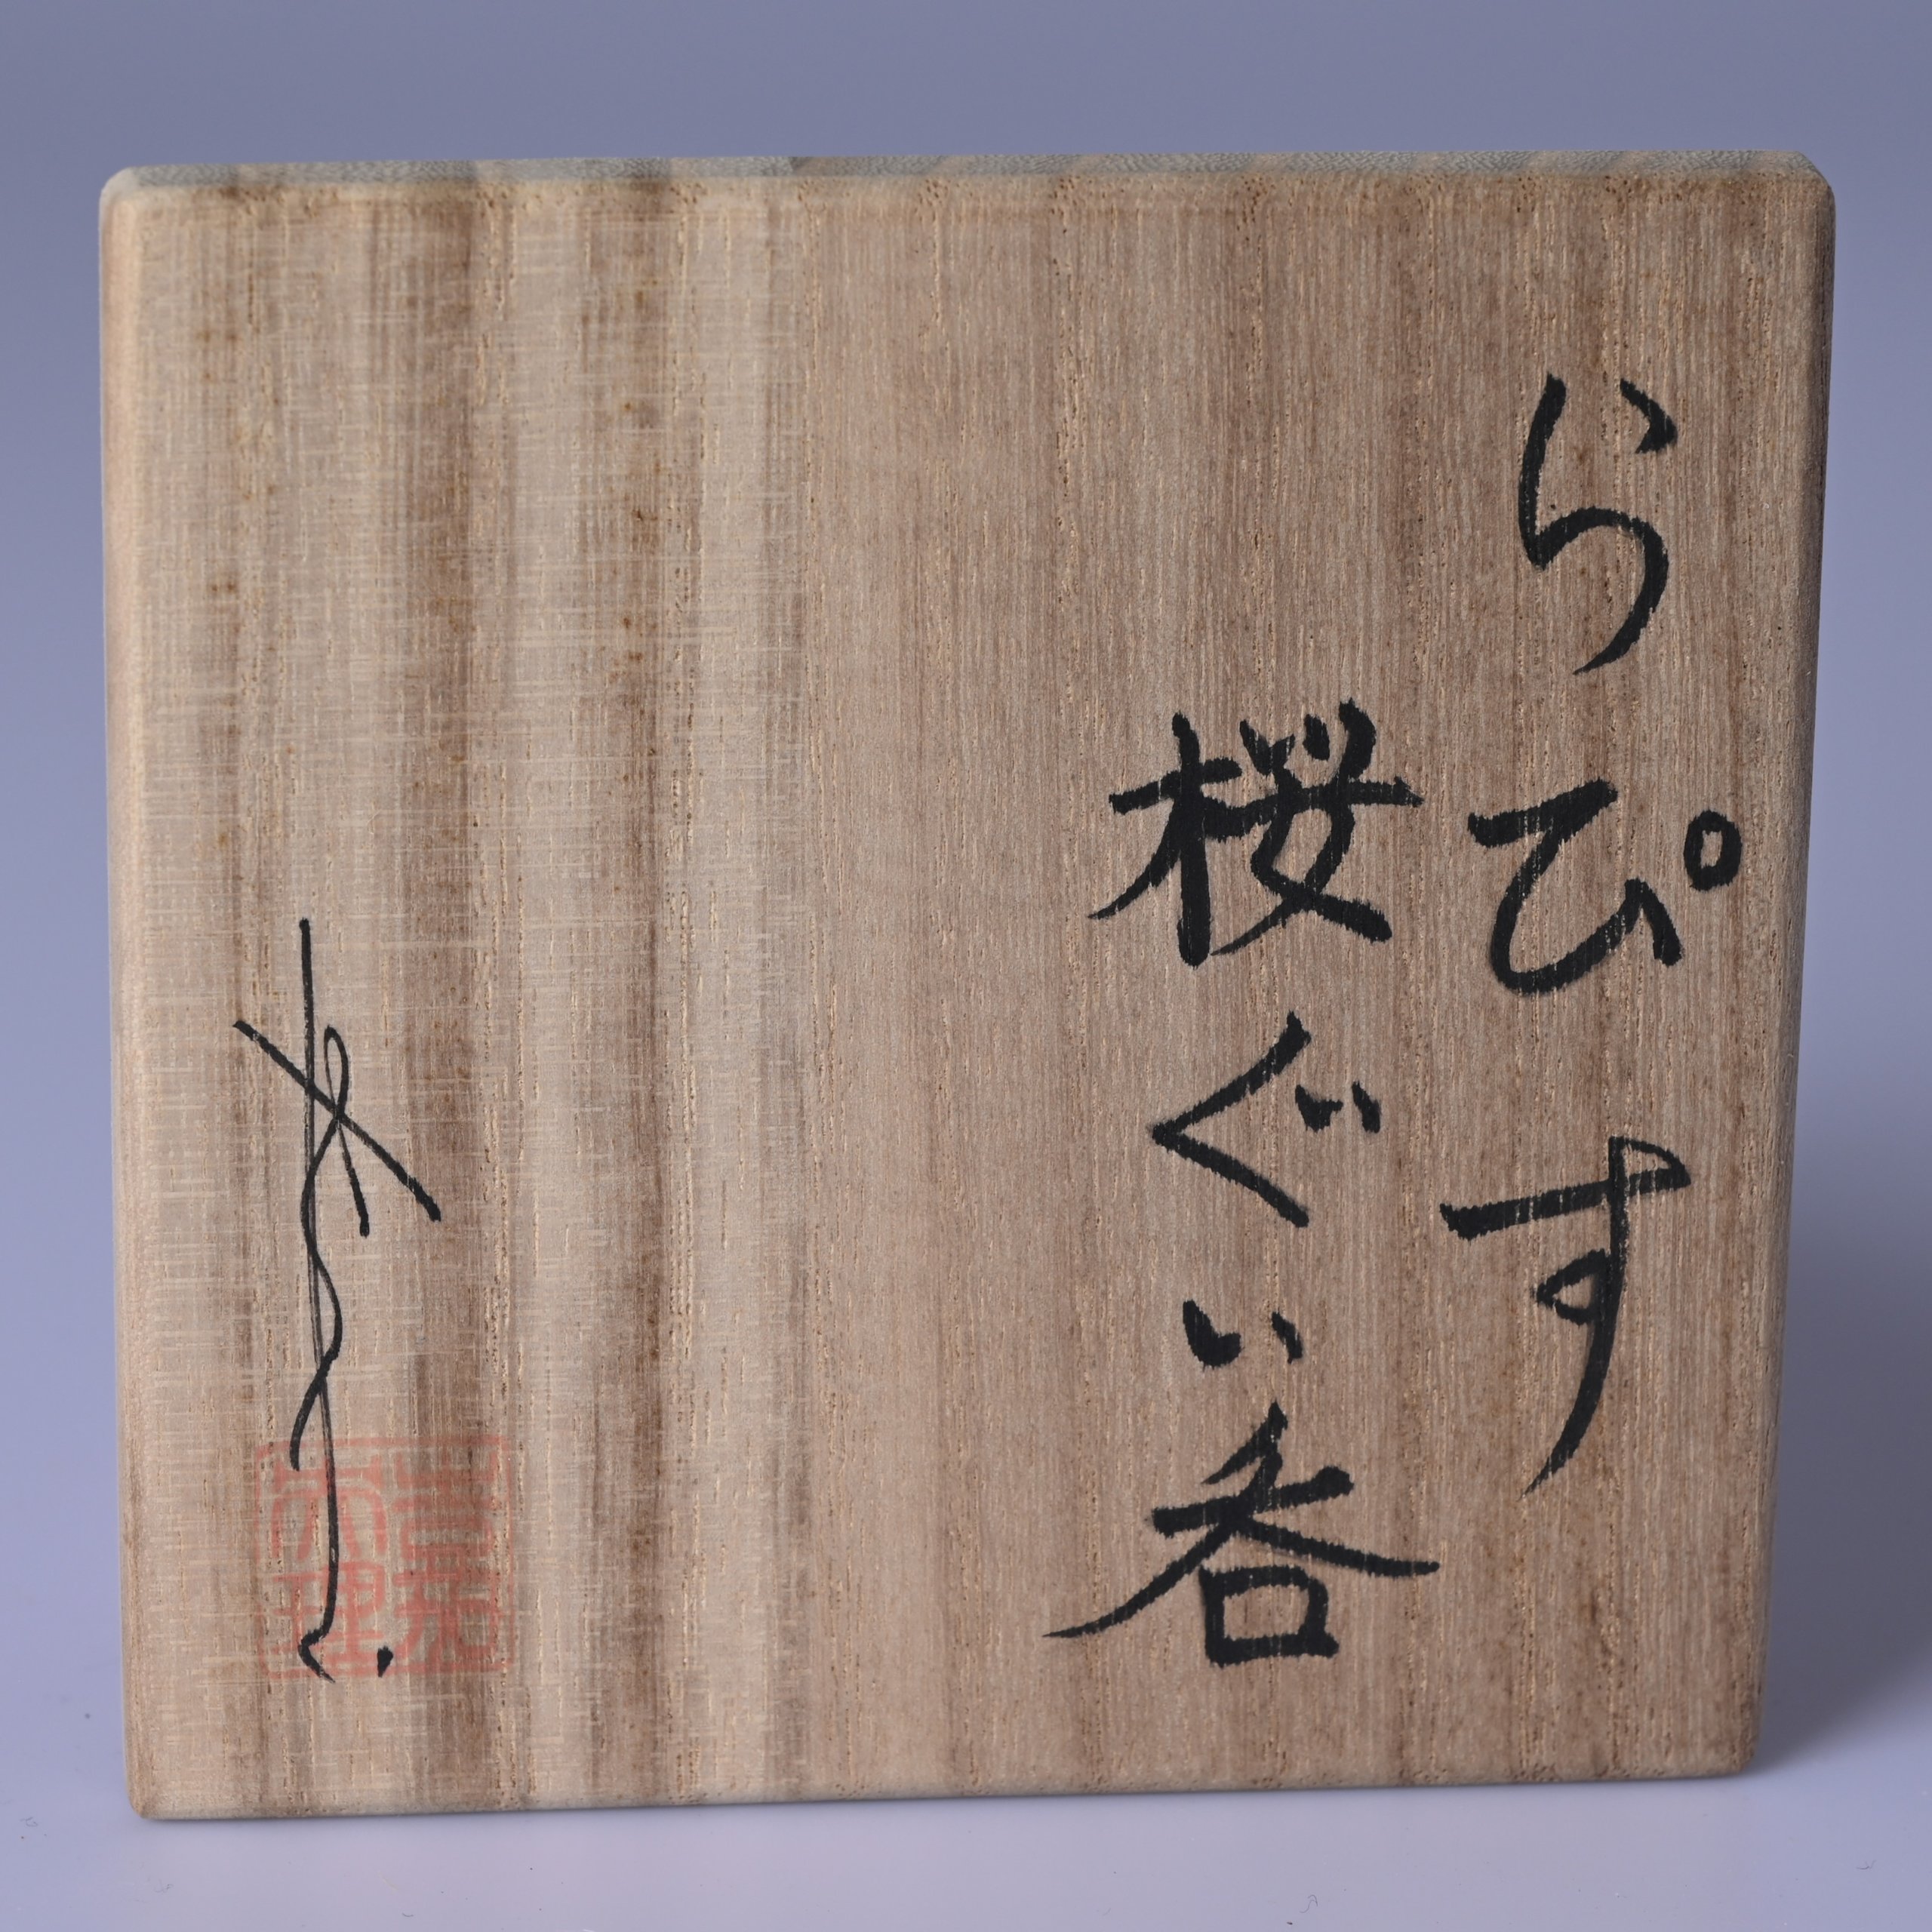 らぴす
桜ぐい呑